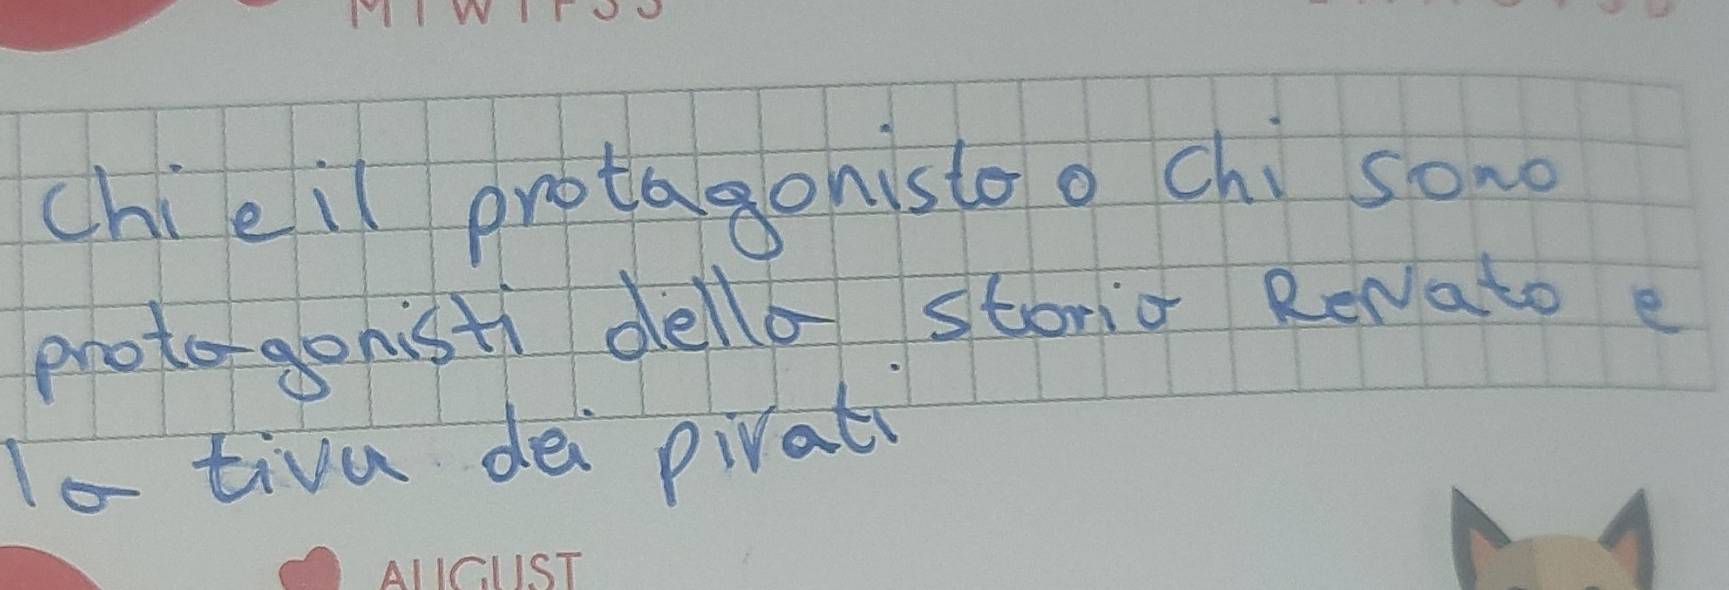 MTWTFSS
chi e il protagonista o chi sono
protagonisti della storia Renato e
la tivu dei pirati
AUGUST